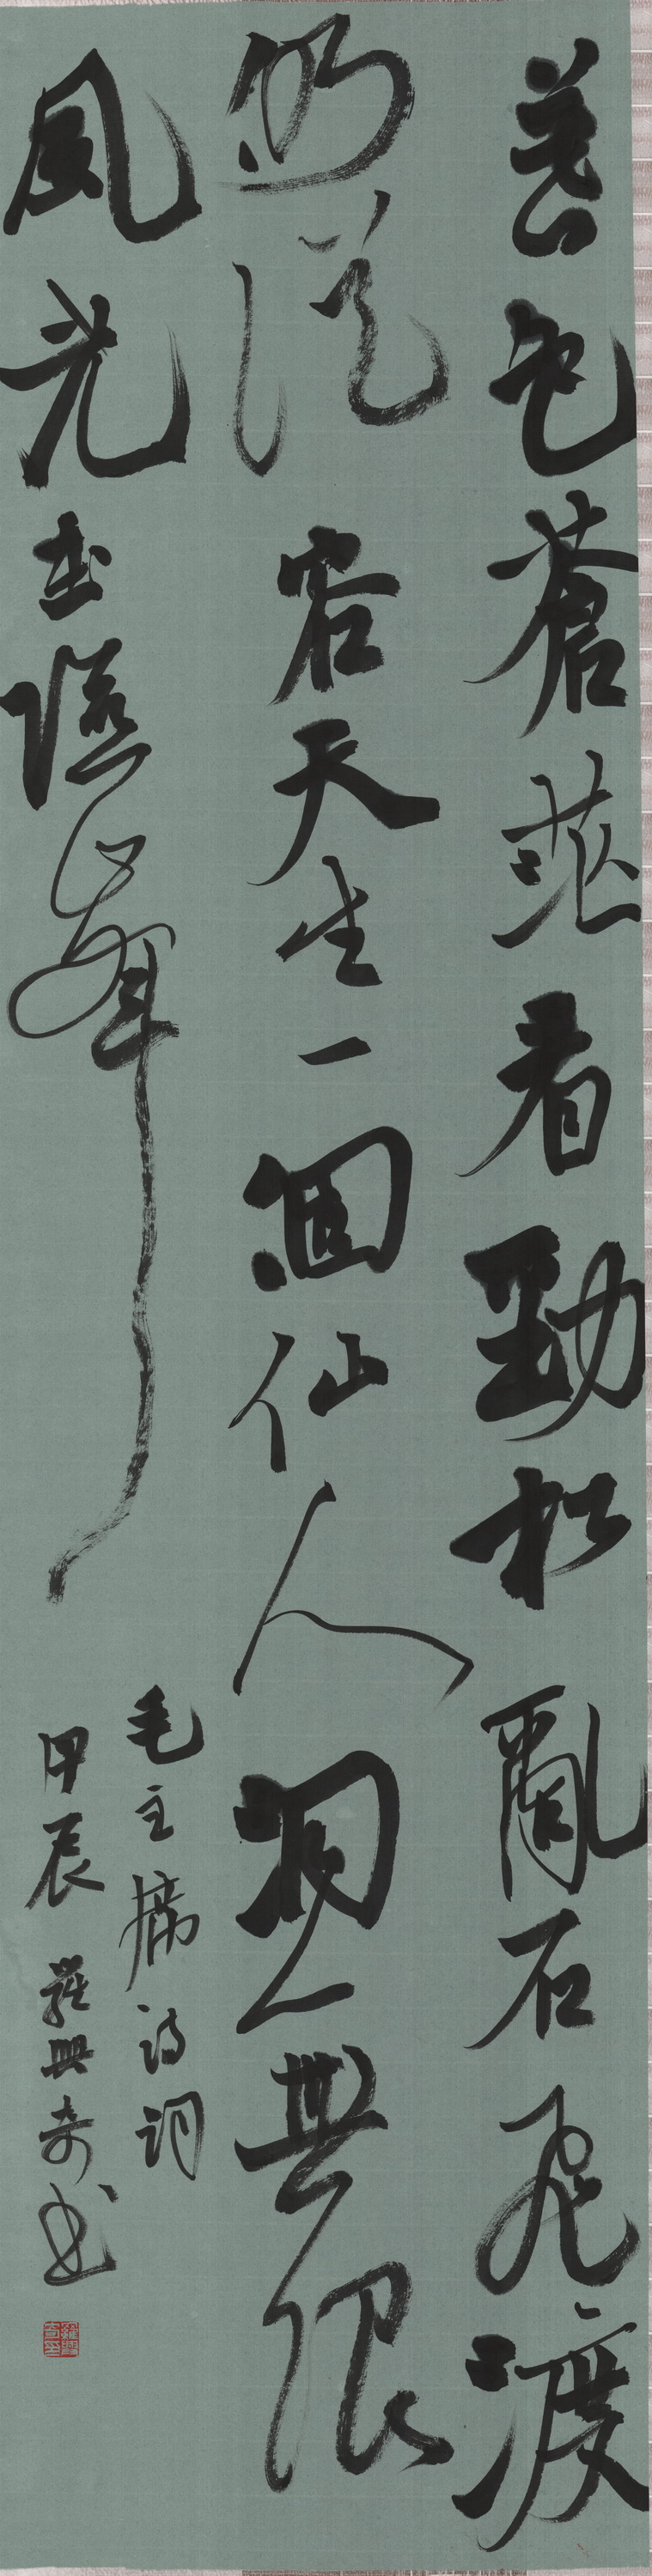 暮色蒼茫看勁松亂石飛渡
仍從容天生一個仙人洞無限
風光在險峰
毛主席詩詞
甲辰 羅興奇书